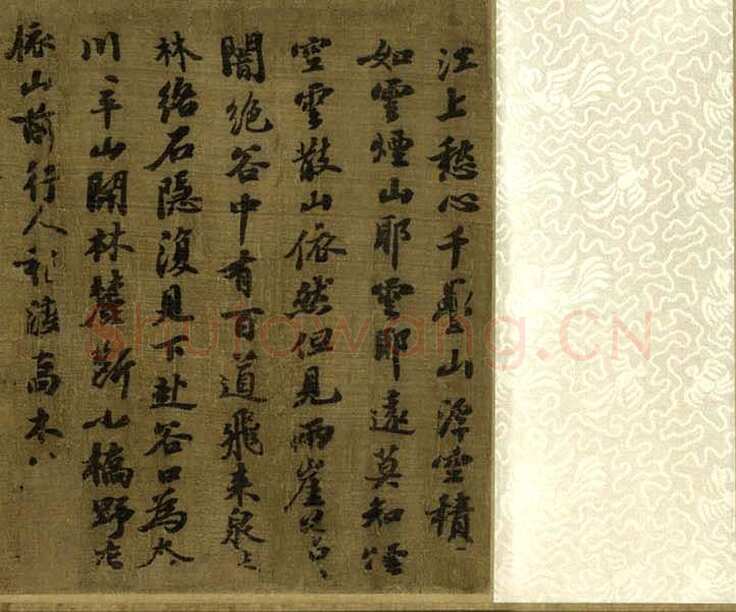 江上愁心千疊山浮空積
如雲煙山耶雲耶遠莫知煙
空雲散山依然但見兩崖蒼〻
闇絕谷中有百道飛來泉
林絡石隱復見下赴谷口為
川〻平山開林麓斷小橋野店
依山前行人稍渡高木
Shufawang.CN